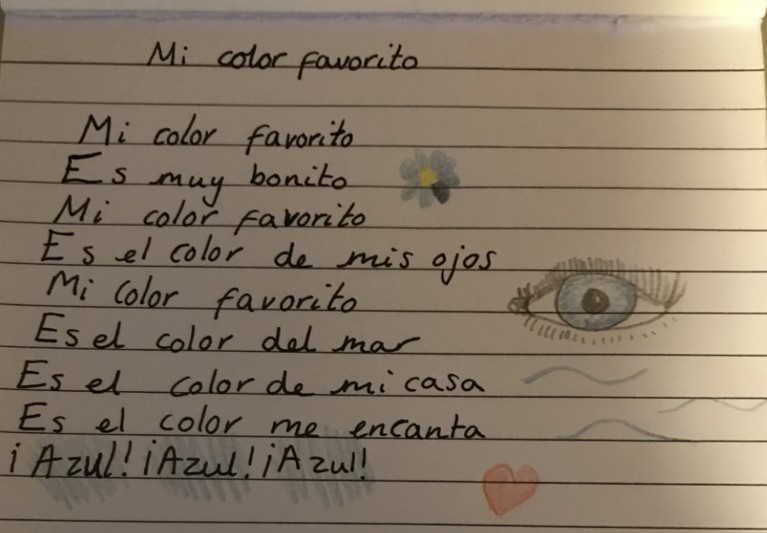 Mi color favorito
Mi color favorito
Es muy bonito
Mi color favorito
Es el color de mis ojos
Mi color favorito
Es el color del mar
Es el color de mi casa
Es el color me encanta
¡Azul! ¡Azul! ¡Azul!